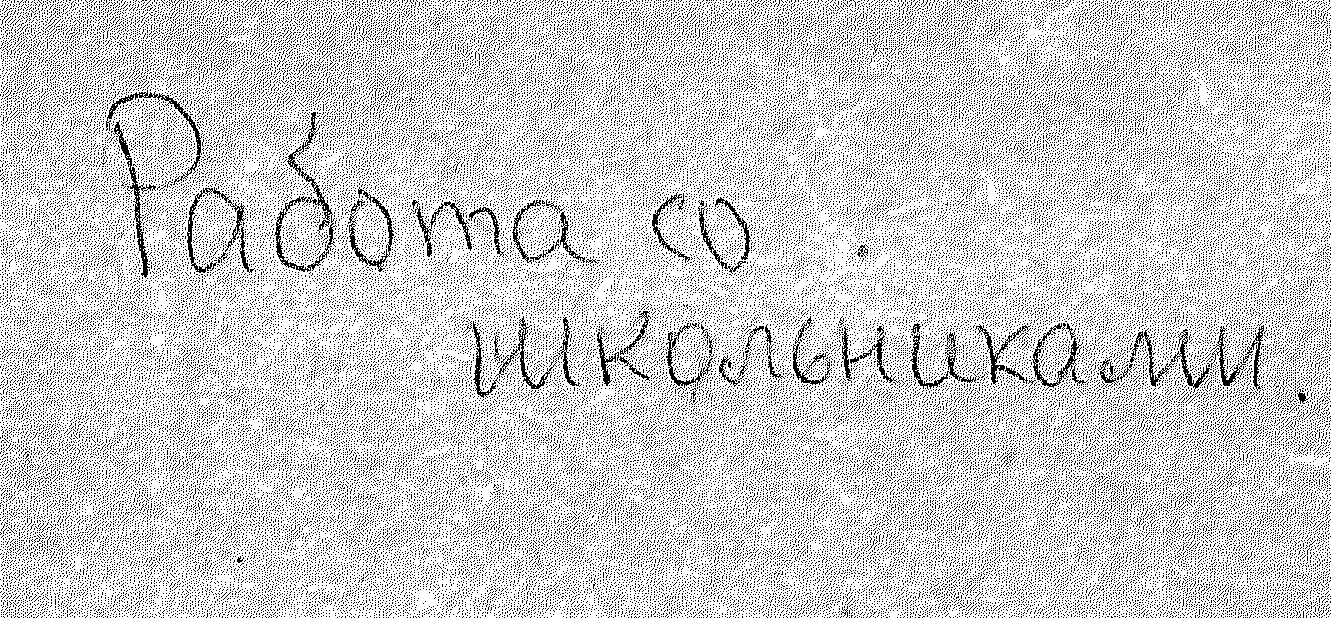 Работа со
школьниками.